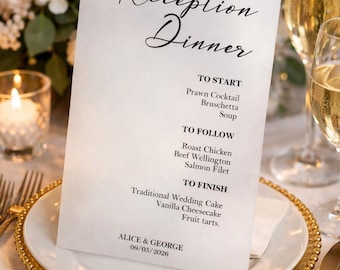 Reception
Dinner
TO START
Prawn Cocktail
Bruschetta
Soup
TO FOLLOW
Roast Chicken
Beef Wellington
Salmon Filet
TO FINISH
Traditional Wedding Cake
Vanilla Cheesecake
Fruit tarts.
ALICE & GEORGE
09/05/2026